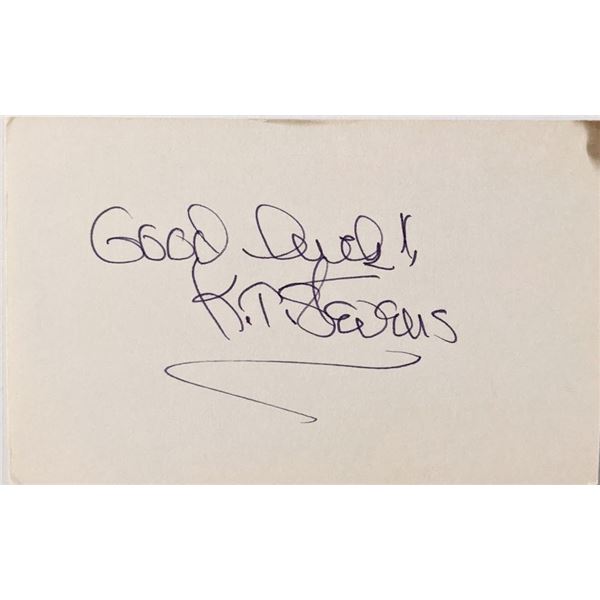 Good luck!,
K.T. Stevens